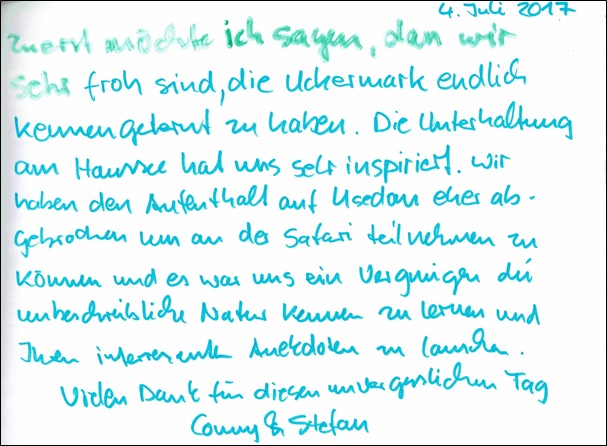 4. Juli 2017
Zuerst möchte ich sagen, dass wir
sehr froh sind, die Uckermark endlich
kennengelernt zu haben. Die Unterhaltung
am Haussee hat uns sehr inspiriert. Wir
haben den Aufenthalt auf Usedom eher ab-
gebrochen um an der Safari teilnehmen zu
können und es war uns ein Vergnügen die
unbeschreibliche Natur kennen zu lernen und
Ihren interessanten Anekdoten zu lauschen.
Vielen Dank für diesen unvergesslichen Tag
Conny & Stefan